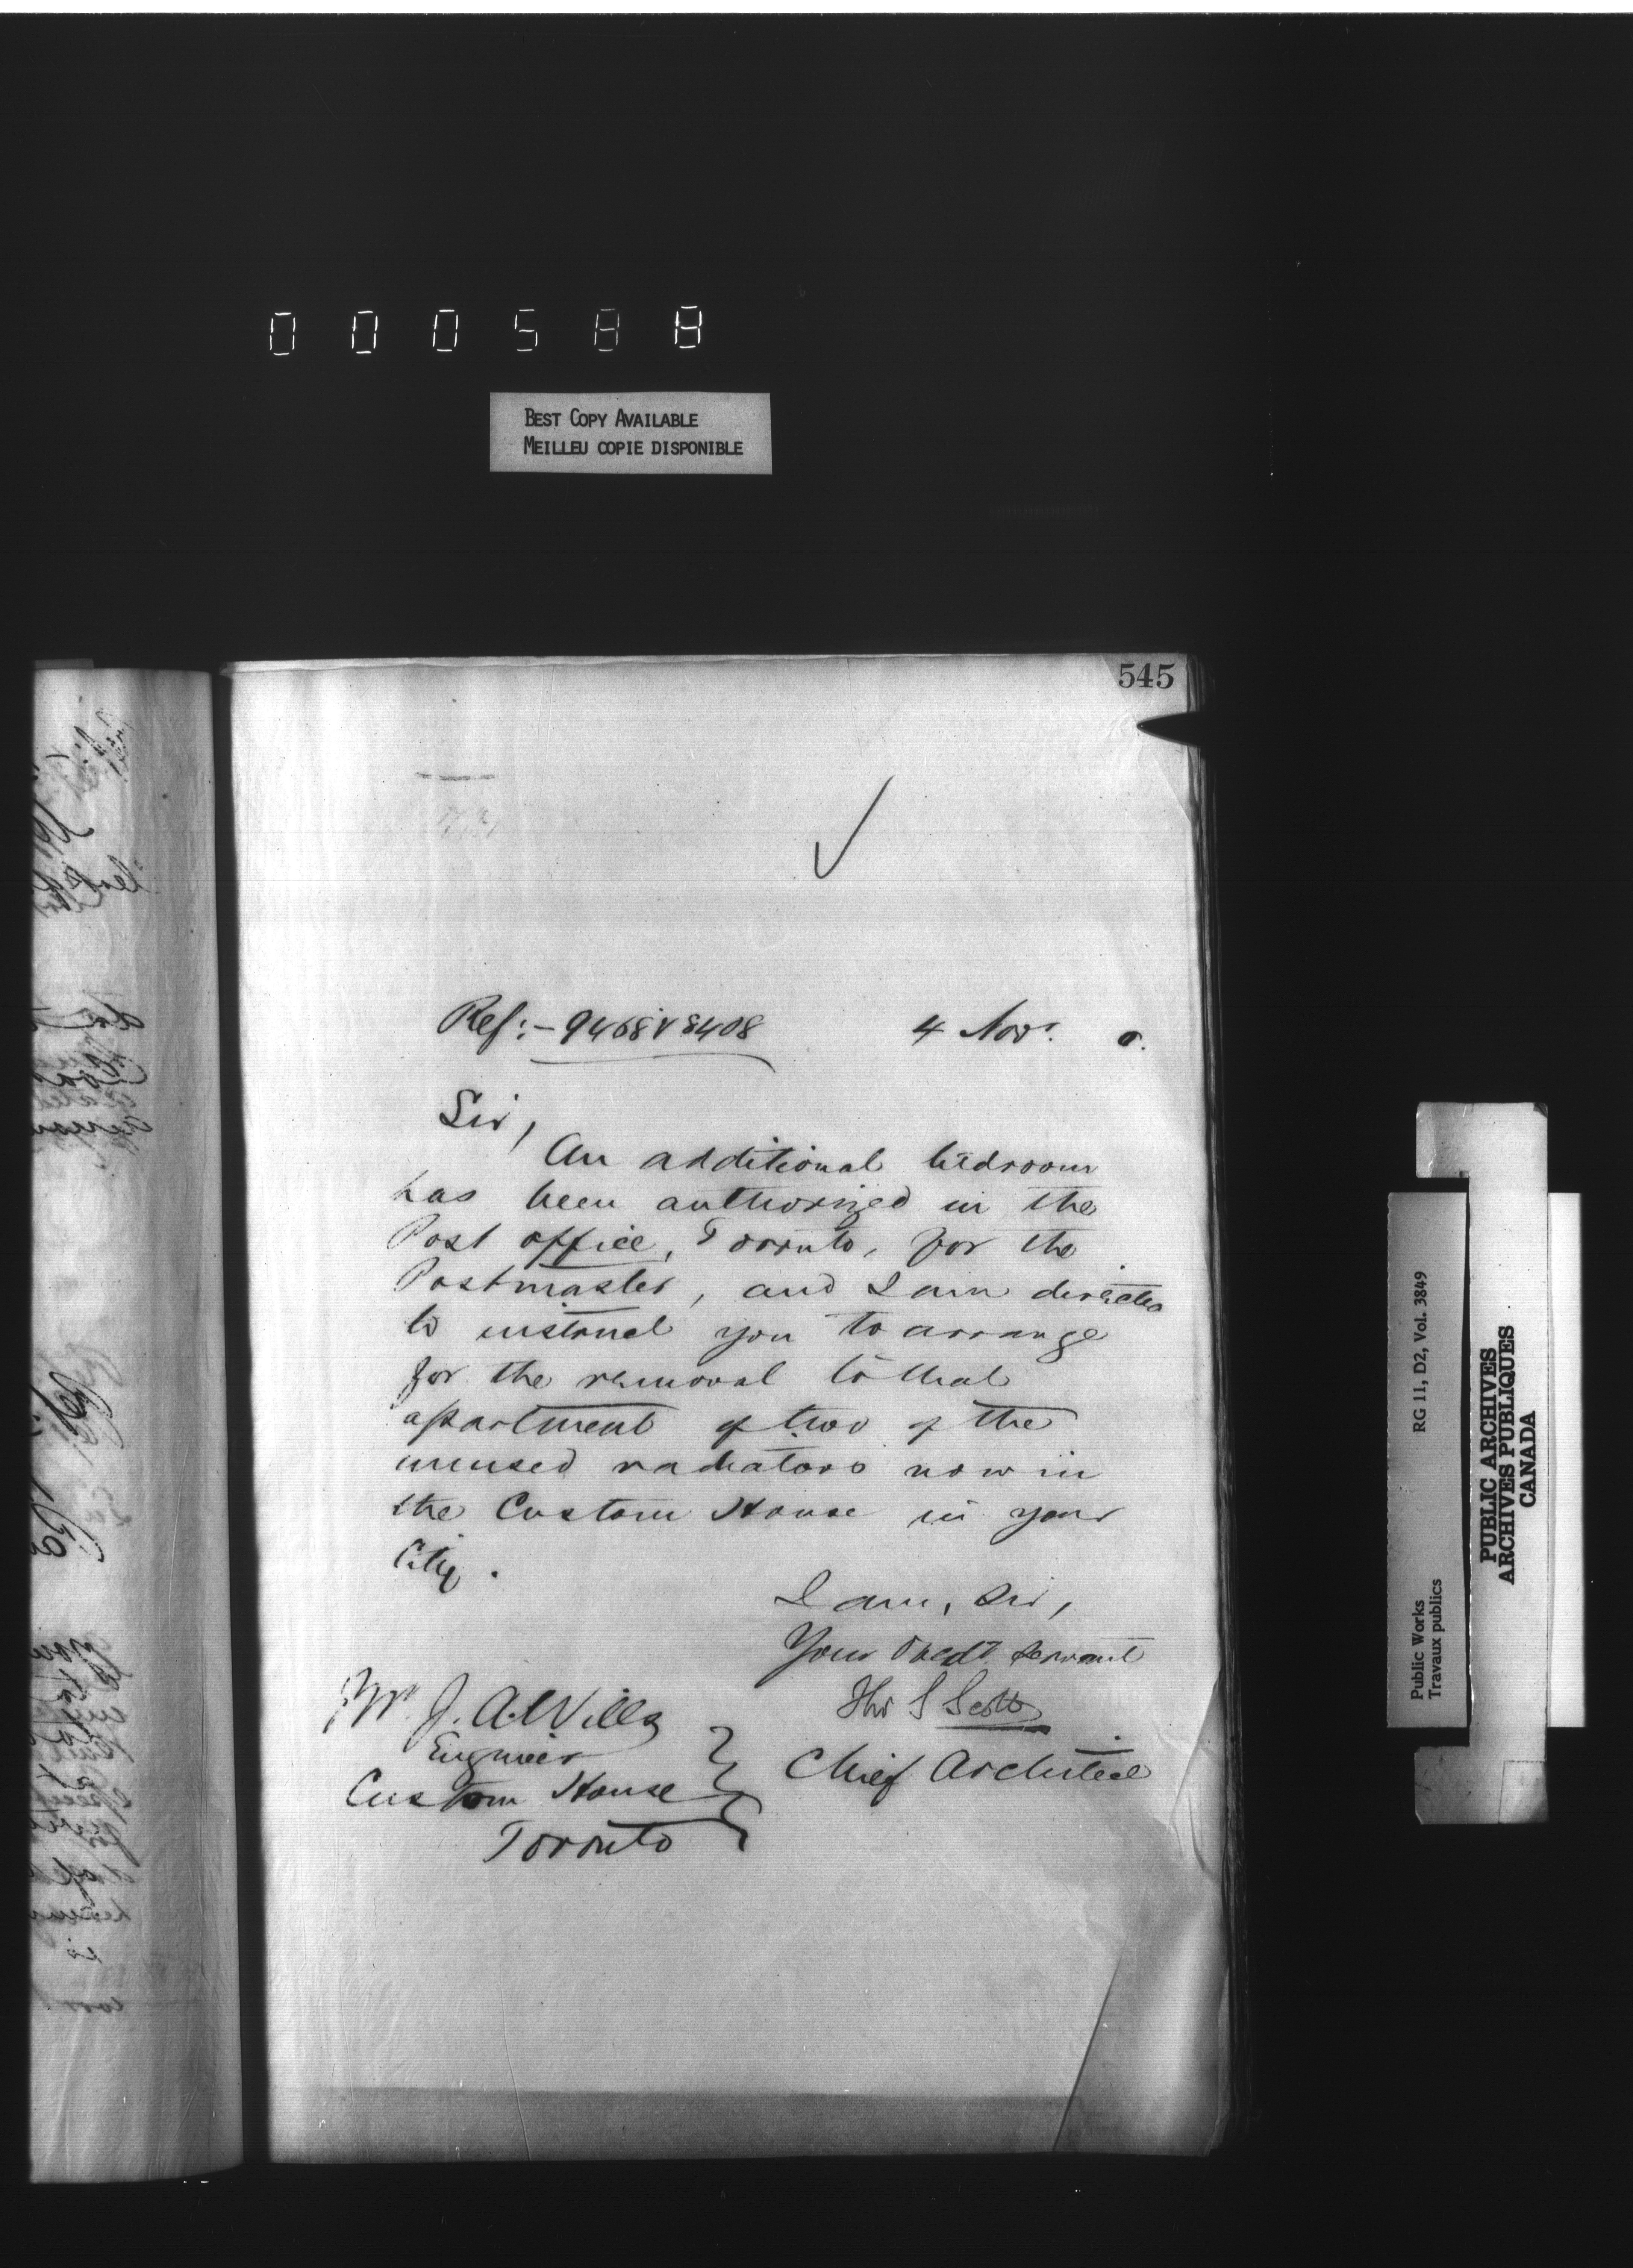 000588
BEST COPY AVAILABLE
MEILLEU COPIE DISPONIBLE
545
Ref:- 9468 & 8408 4 Novr. 0.
Sir,
An additional bedroom
has been authorized in the
Post office, Toronto, for the
Postmaster, and I am directed
to instruct you to arrange
for the removal to that
apartment of two of the
unused radiators now in
the Custom House in your
City.
I am, Sir,
Your Obedt servant
Thos S Scott
Chief Architect
Mr. J. A. Wills
Engineer
Custom House
Toronto
Public Works RG 11, D2, Vol. 3849
Travaux publics
PUBLIC ARCHIVES
ARCHIVES PUBLIQUES
CANADA